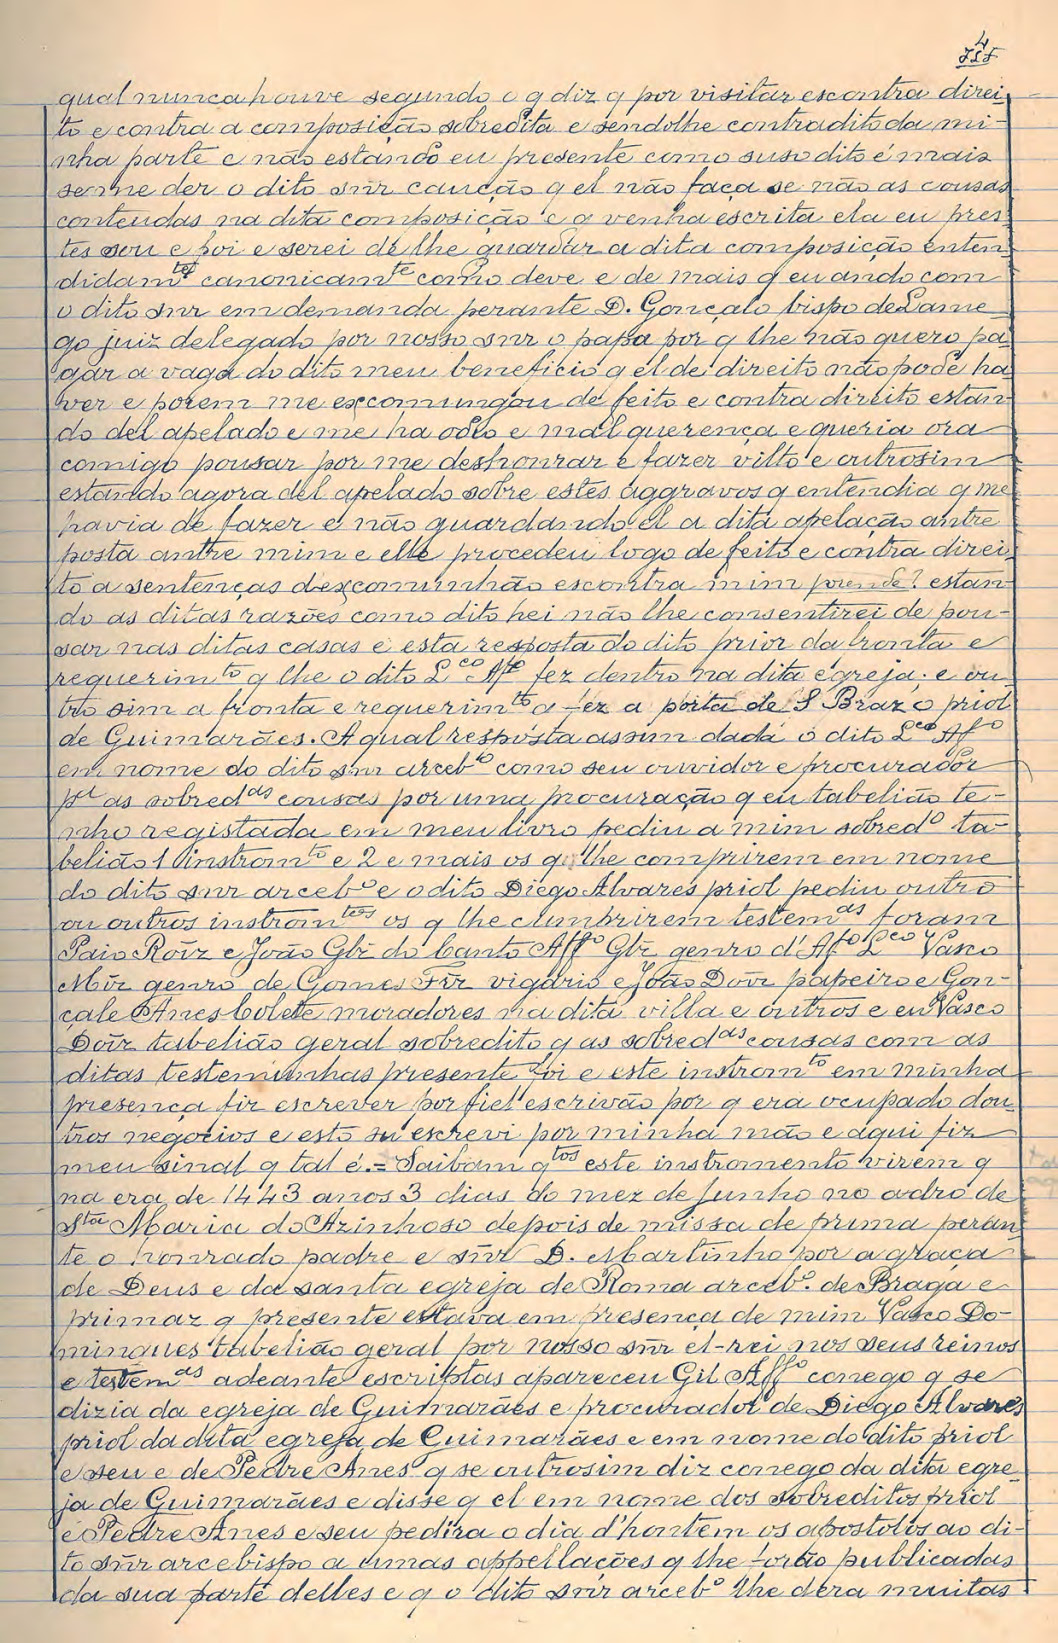 4
qual nunca houve segundo o q diz q por visitar escontra direi
to e contra a composição sobredita e sendolhe contradito da mi-
nha parte e não estando eu presente como suso dito é mais
se me der o dito snr caução q el não faça se não as cousas
contendas na dita composição e q venha escrita ela eu pres
tes sou e foi e serei de lhe guardar a dita composição enten
didam^te canonicam^te como deve e de mais q eu ando com
o dito snr em demanda perante D. Gonçalo bispo de Lame
go juiz delegado por nosso snr o papa por q lhe não quero pa
gar a vaga do dito meu beneficio q el de direito não pode ha
ver e porem me excomungou de feito e contra direito estan
do del apelado e me ha odio e mal querença e queria ora
comigo pousar por me deshonrar e fazer vilto e outrosim
estando agora del apelado sobre estes aggravos q entendia q me
havia de fazer e não guardando el a dita apelação antre
posta antre mim e elle procedeu logo de feito e contra direi
to a sentenças dexcomunhão escontra mim porende? estan
do as ditas razões como dito hei não lhe consentirei de pou-
sar nas ditas casas e esta resposta do dito prior da fronta e
requerim^to q lhe o dito L^co Aff^o fez dentro na dita egreja. e ou
tro sim a fronta e requerim^to a fez a porta de S Braz o priol
de Guimarães. A qual resposta assim dada o dito L^co Aff^o
em nome do dito snr arceb^o como seu ouvidor e procurador
p^a as sobred^as cousas por uma procuração q eu tabelião te-
nho registada em meu livro pediu a mim sobred^o ta-
belião 1 instrom^to e 2 e mais os q lhe comprirem em nome
do dito snr arceb^o e o dito Diego Alvares priol pediu outro
ou outros instrom^tos os q lhe cumprirem testem^as foram
Paio Roiz e João Glz do Canto Aff^o Glz genro d'Af^o L^co Vasco
Miz genro de Gomes Frz vigario e João Doiz papeiro e Gon-
cale Anes Colete moradores na dita villa e outros e eu Vasco
Doiz tabelião geral sobredito q as sobred^as cousas com as
ditas testemunhas presente foi e este instrom^to em minha
presença fiz escrever por fiel escrivão por q era ocupado dou
tros negocios e esto su escrevi por minha mão e aqui fiz
meu sinal q tal é. = Saibam q^tos este instromento virem q
na era de 1443 anos 3 dias do mez de Junho no adro de
S^ta Maria do Azinhoso depois de missa de prima peran
te o honrado padre e snr D. Martinho por a graça
de Deus e da santa egreja de Roma arceb^o. de Braga e
primaz q presente estava em presença de mim Vasco Do-
mingues tabelião geral por nosso snr el-rei nos seus reinos
e testem^as adeante escriptas apareceu Gil Aff^o conego q se
dizia da egreja de Guimarães e procurador de Diego Alvares
priol da dita egreja de Guimarães e em nome do dito priol
e seu e de Pedre Anes q se outrosim diz conego da dita egre
ja de Guimarães e disse q el em nome dos sobreditos priol
e Pedre Anes e seu pedira o dia d'hontem os apostolos ao di-
to snr arcebispo a umas appellações q lhe forão publicadas
da sua parte delles e q o dito snr arceb^o lhe dera muitas